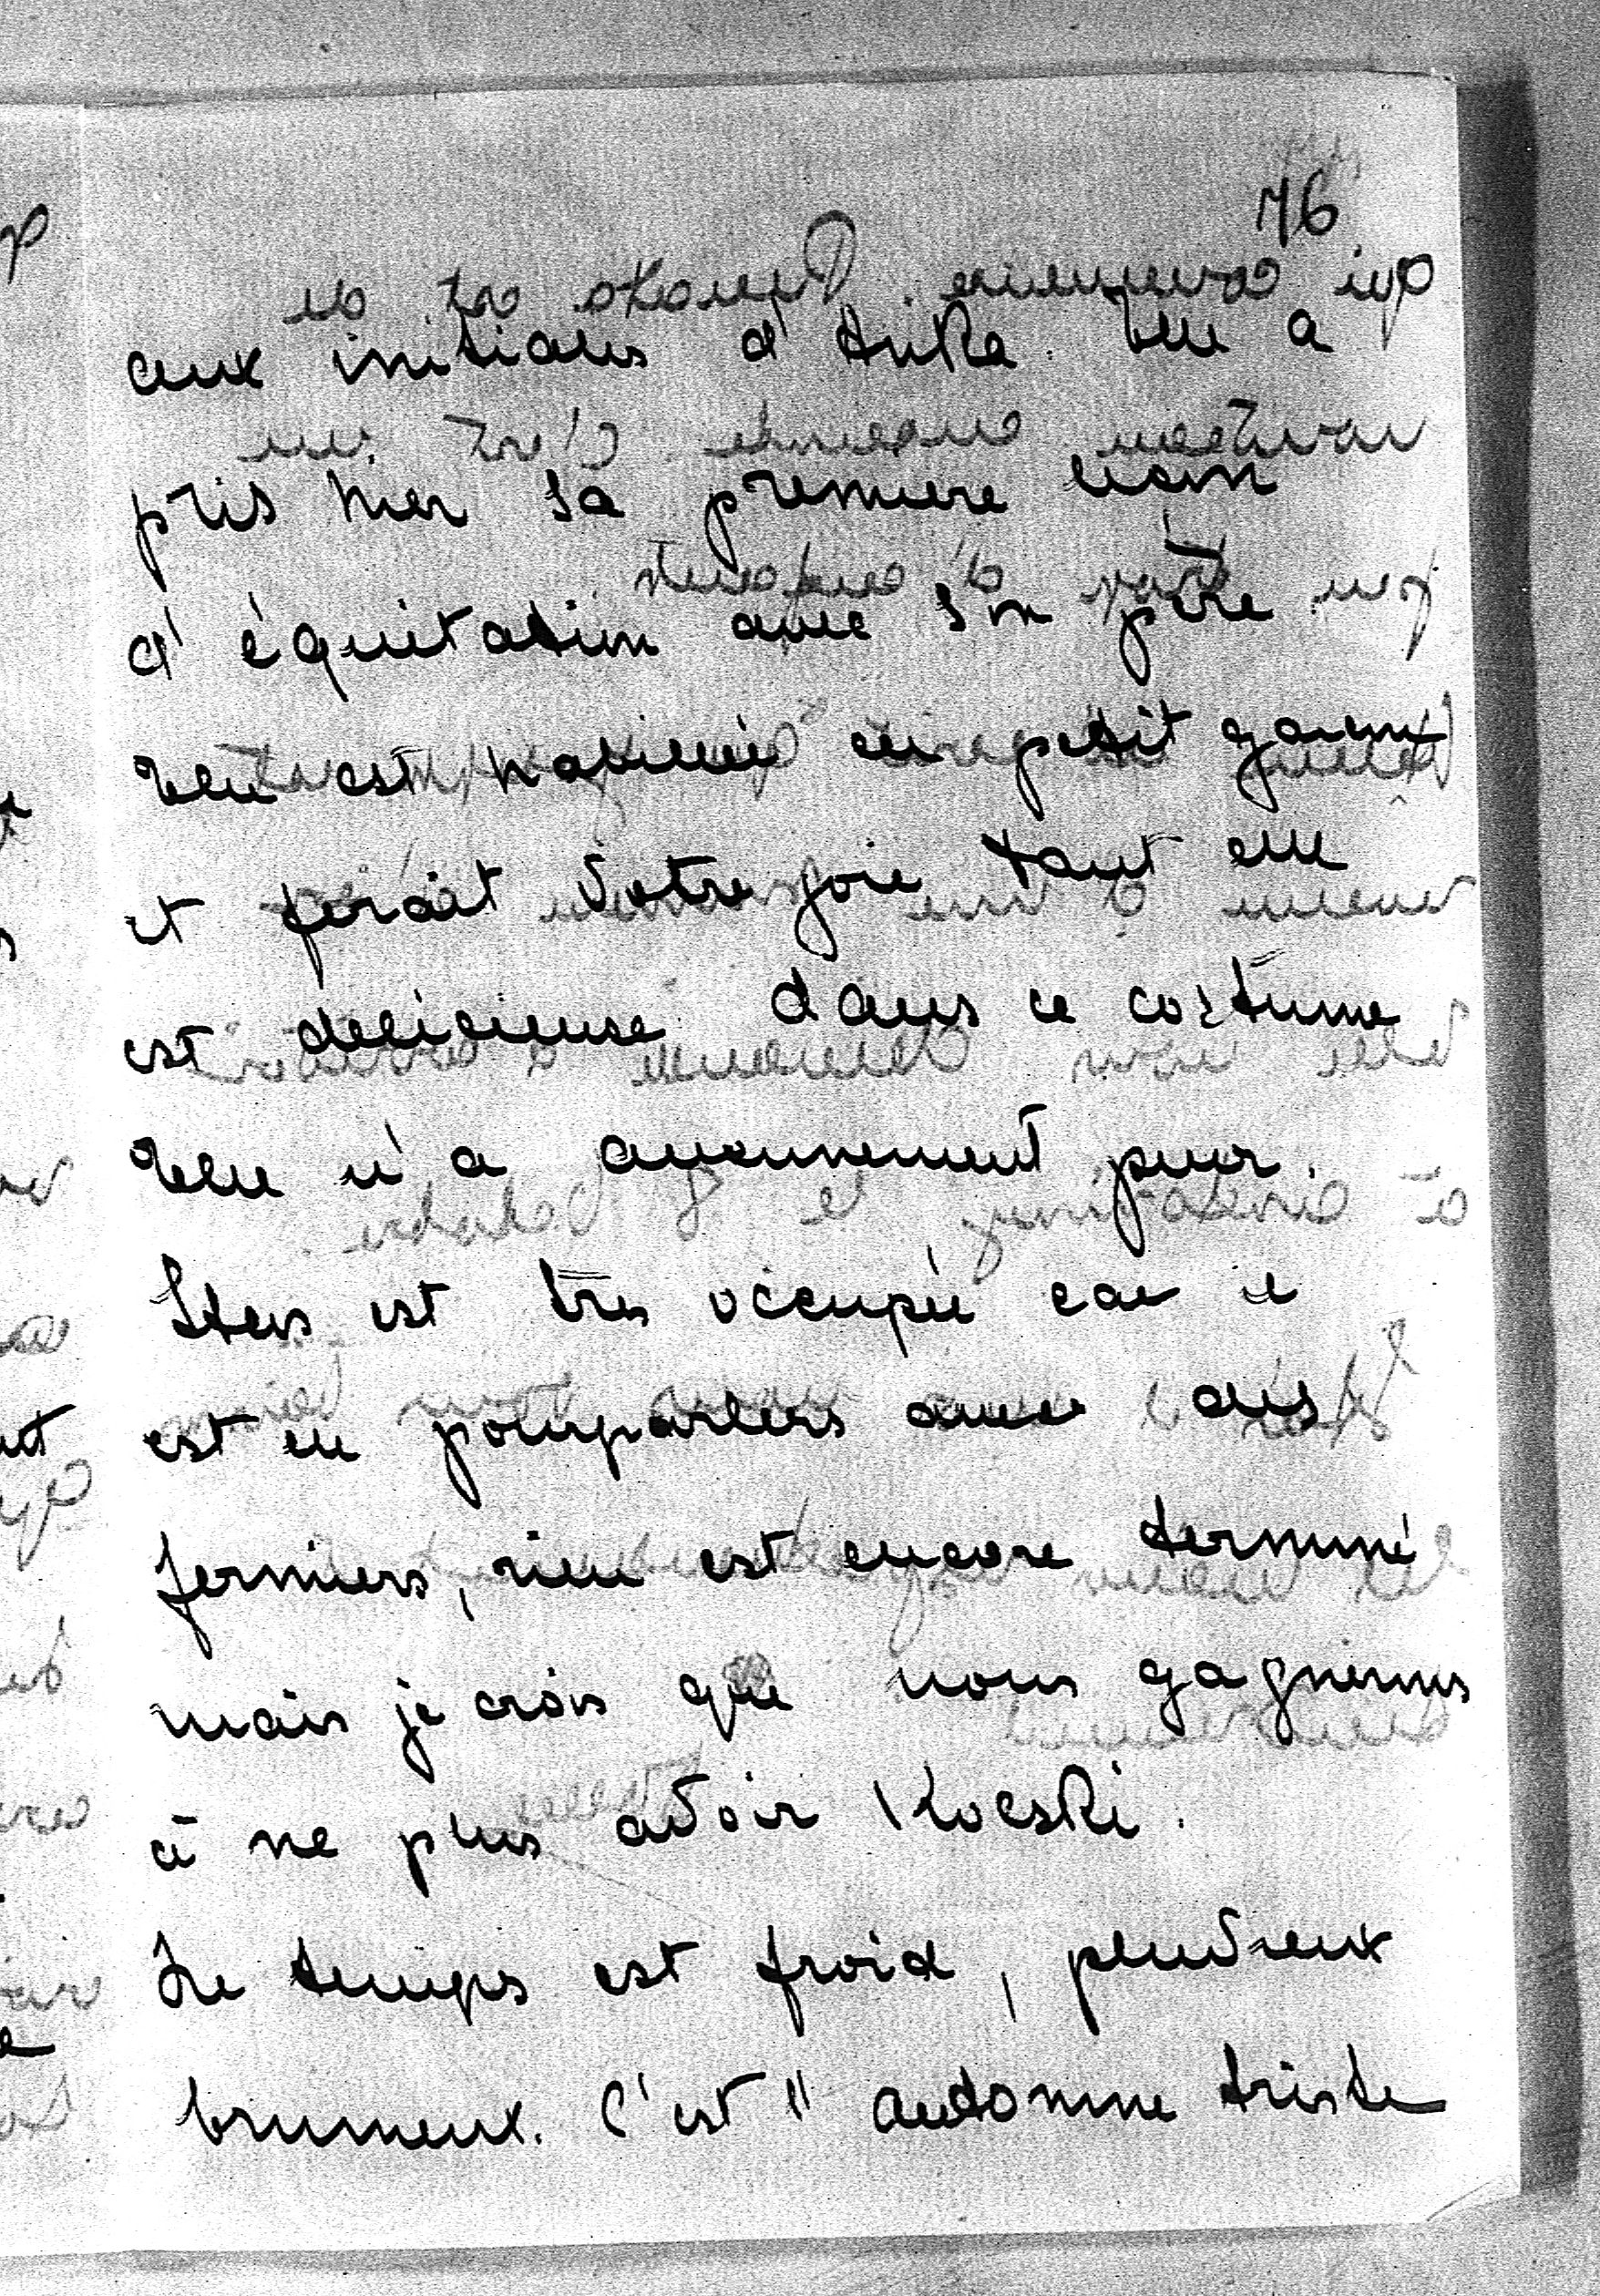 76
aux initiales d'Anka. Elle a
pris hier sa premiere leçon
d'équitation avec son père
Elle est habillée en petit garçon
et ferait votre joie tant elle
est delicieuse dans ce costume
Elle n'a aucunement peur.
Stas est très occupé car il
est en pourparlers avec des
fermiers, rien est encore terminé
mais je crois que nous gagnerons
à ne plus avoir Kocski.
Le temps est froid, pluvieux
brumeux. C'est l'automne triste